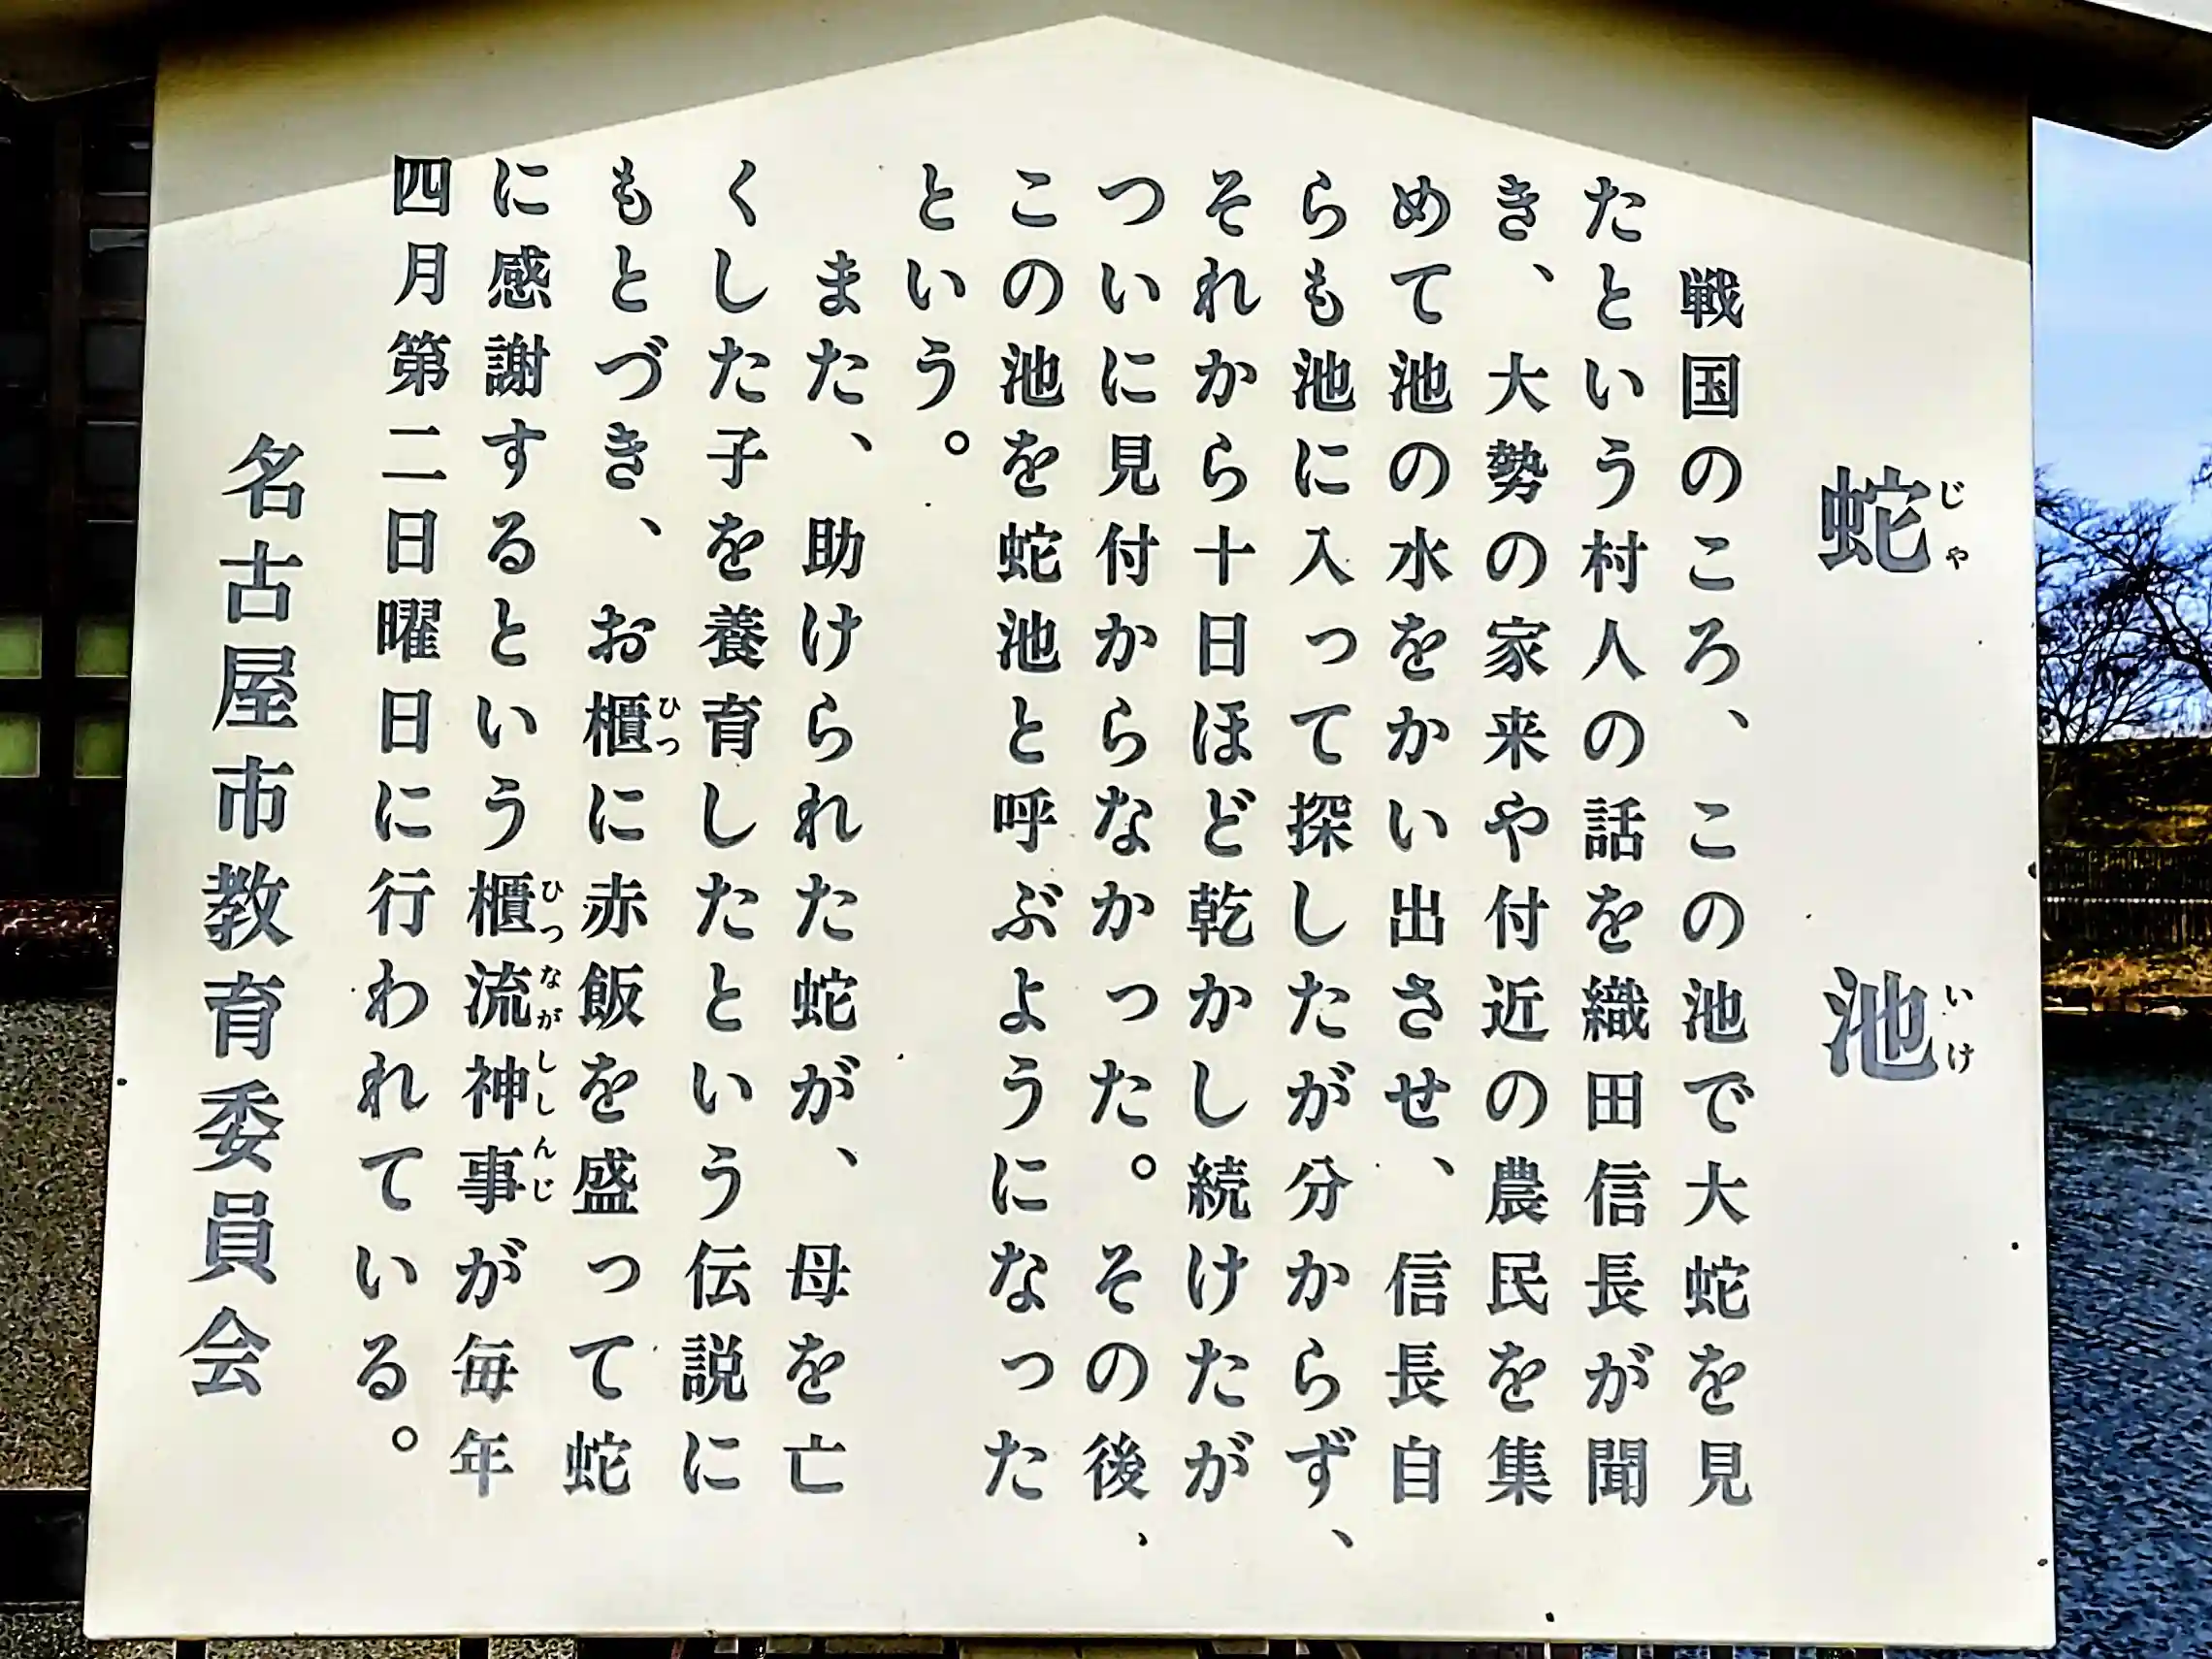 蛇池
じゃ いけ
戦国のころ、この池で大蛇を見
たという村人の話を織田信長が聞
き、大勢の家来や付近の農民を集
めて池の水をかい出させ、信長自
らも池に入って探したが分からず、
それから十日ほど乾かし続けたが
ついに見付からなかった。その後、
この池を蛇池と呼ぶようになった
という。
また、助けられた蛇が、母を亡
くした子を養育したという伝説に
もとづき、お櫃に赤飯を盛って蛇
ひつ
に感謝するという櫃流神事が毎年
ひつながししんじ
四月第二日曜日に行われている。
名古屋市教育委員会